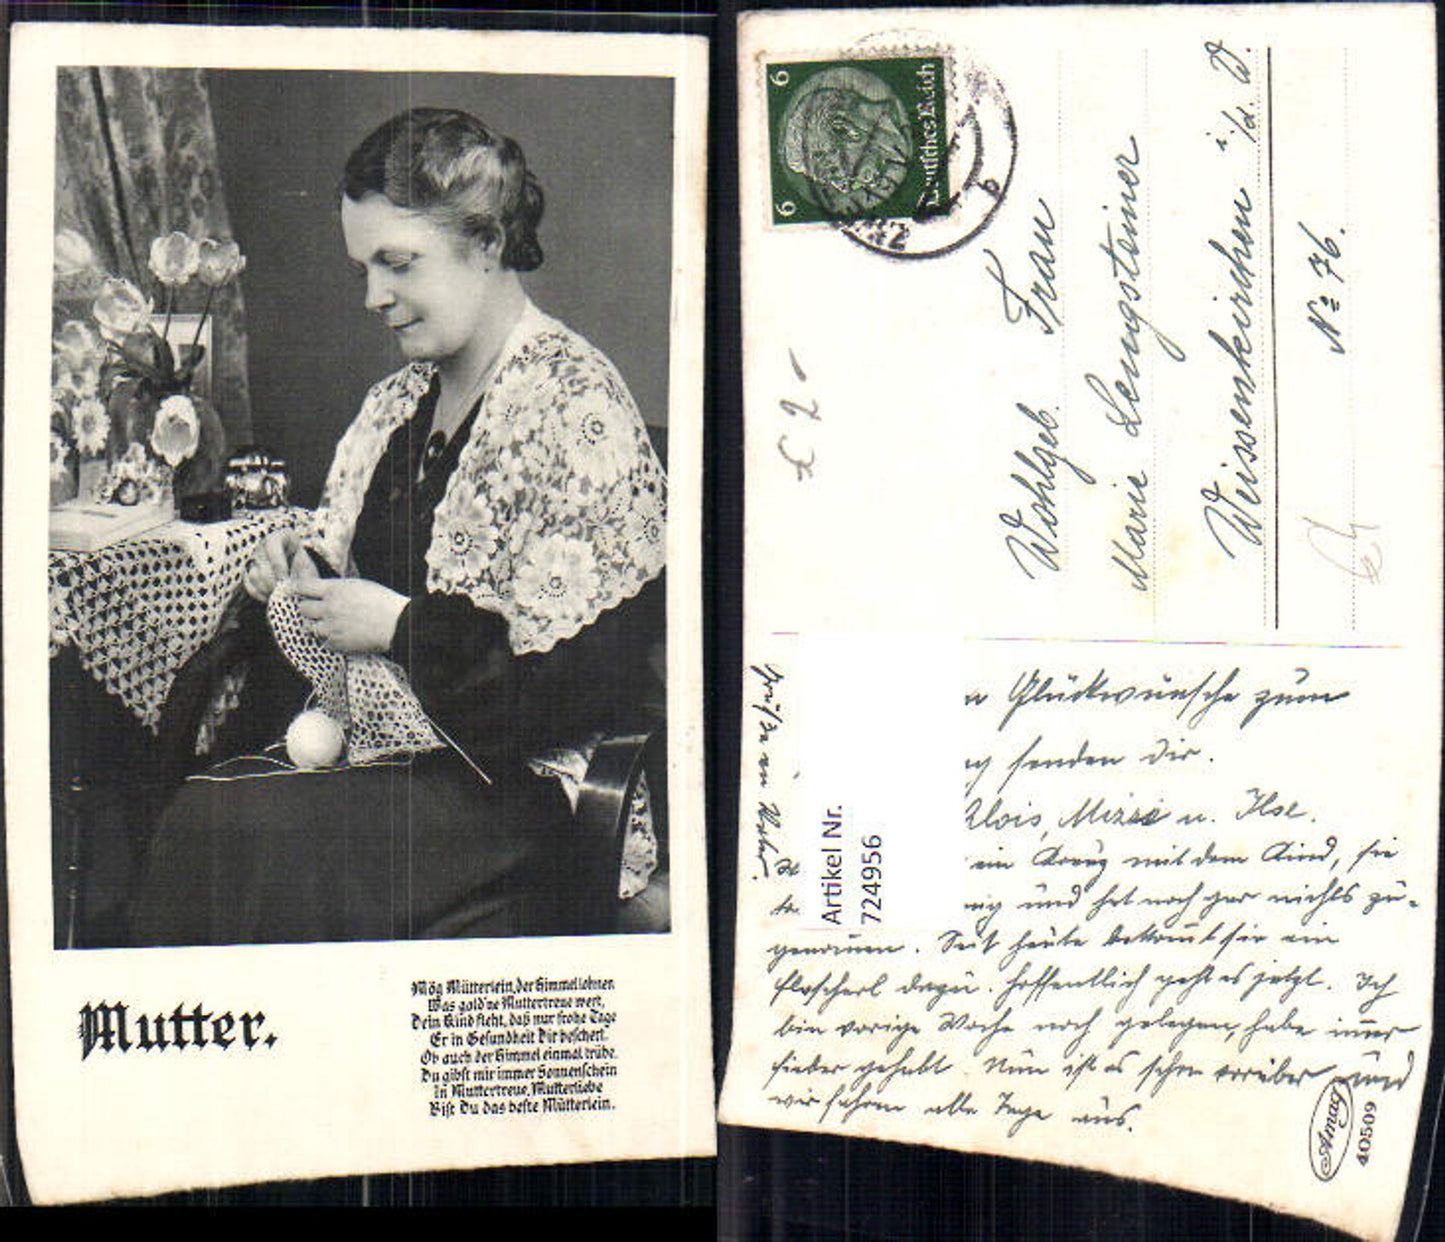 Mutter.
Mög Mütterlein, der Himmel lohnen
Was gold'ne Muttertreue wert,
Dein Kind fleht, daß nur frohe Tage
Er in Gesundheit Dir beschert.
Ob auch der Himmel einmal trübe.
Du gibst mir immer Sonnenschein
in Muttertreue, Mutterliebe
Bist Du das beste Mütterlein.
6 6
Deutsches Reich
b
£ 2-
Wohlgeb. Frau
Marie Lengsteiner
Weissenkirchen i/d. W.
№ 76.
Artikel Nr.
724956
n Glückwünsche zum
ag senden Dir.
Alois, Mizzi u. Ilse.
ein Kreuz mit dem Kind, sie
nig und hat noch gar nichts zu-
genommen. Seit heute bekommt sie ein
Flascherl dazu. Hoffentlich geht es jetzt. Ich
bin vorige Woche noch gelegen, habe immer
Fieber gehabt. Nun ist es schon vorüber und
wir fahren alle Tage aus.
Grüße an
Amag
40509